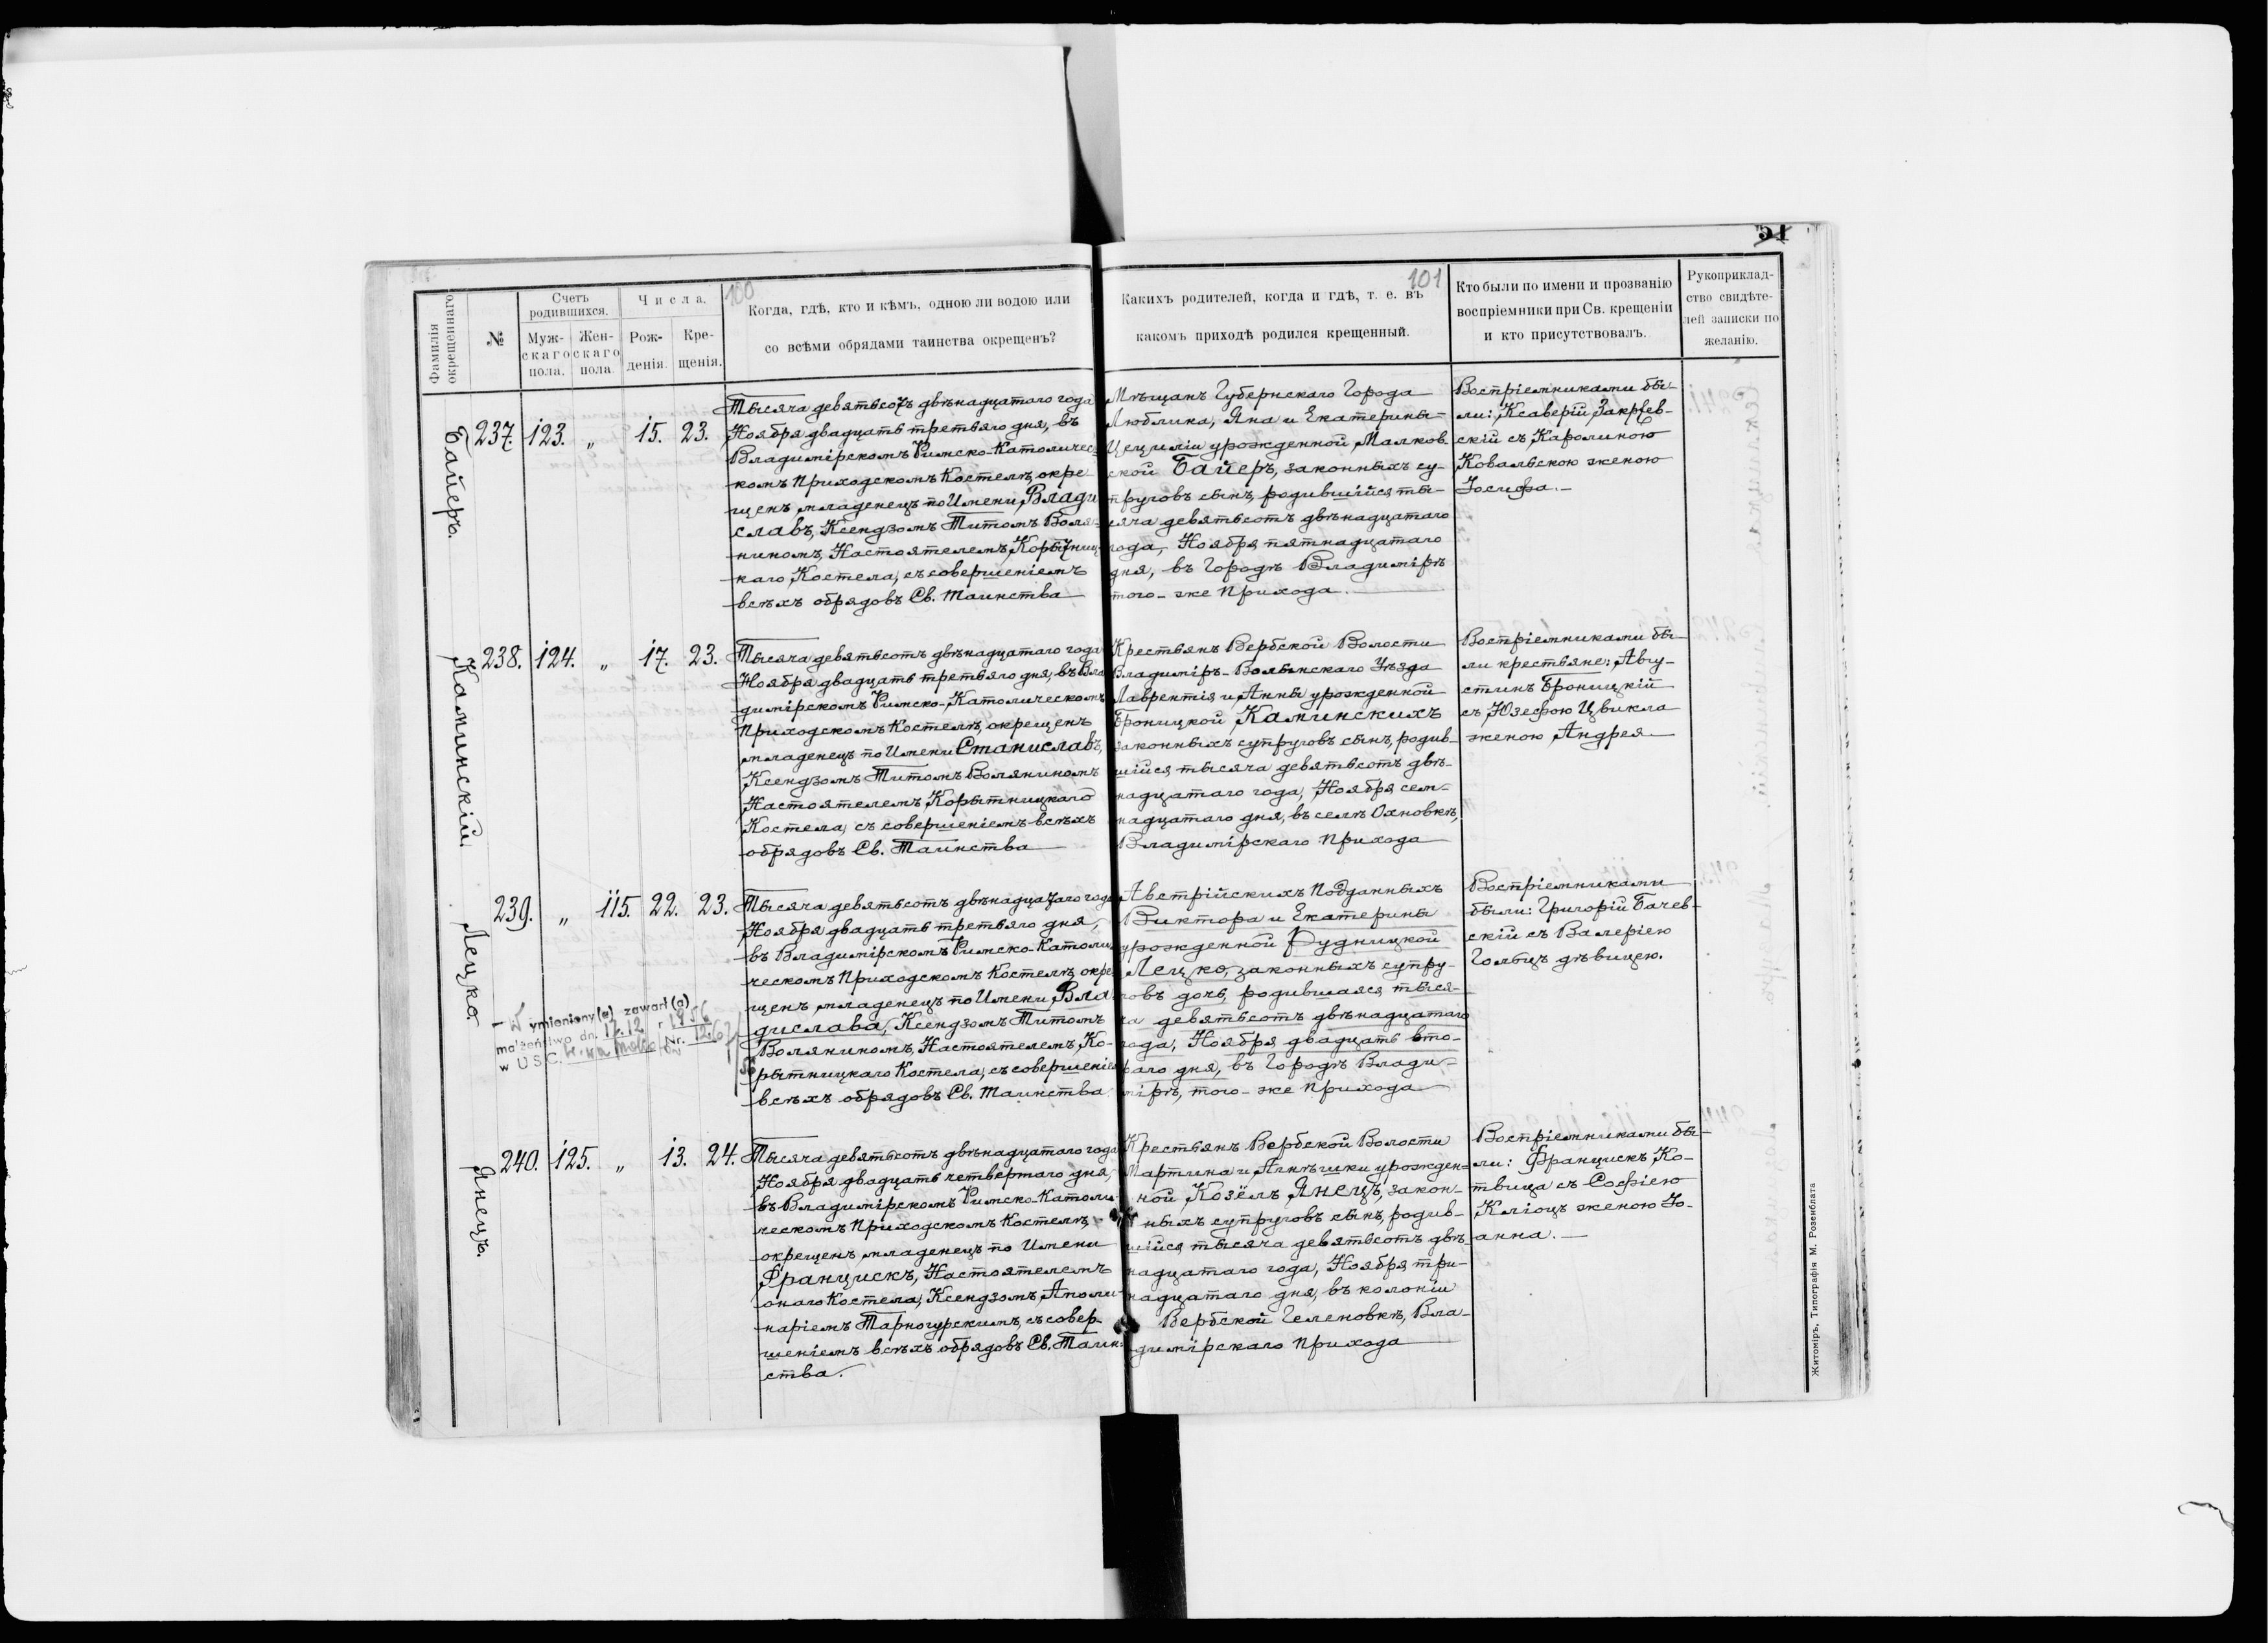 51
100
101
Фамилія окрещеннаго.
№
Счетъ родившихся.
Муж-скаго пола.
Жен-скаго пола.
Числа.
Рож-денія.
Кре-щенія.
Когда, гдѣ, кто и кѣмъ, одною ли водою или
со всѣми обрядами таинства окрещенъ?
Какихъ родителей, когда и гдѣ, т. е. въ
какомъ приходѣ родился крещенный.
Кто были по имени и прозванію
воспріемники при Св. крещеніи
и кто присутствовалъ.
Рукоприклад-
ство свидѣте-
лей записки по
желанію.
Байеръ.
237. 123. „ 15. 23.
Тысяча девятьсотъ двѣнадцатаго года
Ноября двадцать третьяго дня, въ
Владимірскомъ Римско-Католичес-
комъ Приходскомъ Костелѣ, окре-
щенъ младенецъ по Имени Влади-
славъ, Ксендзомъ Титомъ Воля-
ниномъ, Настоятелемъ Корытниц-
каго Костела, съ совершеніемъ
всѣхъ обрядовъ Св. Таинства
Мѣщанъ Губернскаго Города
Люблина, Яна и Екатерины-
Цециліи урожденной Малков-
ской Байеръ, законныхъ су-
пруговъ сынъ, родившійся ты-
сяча девятьсотъ двѣнадцатаго
года, Ноября пятнадцатаго
дня, въ Городѣ Владимірѣ
того-же Прихода.
Воспріемниками бы-
ли: Ксаверій Закржев-
скій съ Каролиною
Ковальскою женою
Іосифа.
Каминскій.
238. 124. „ 17. 23.
Тысяча девятьсотъ двѣнадцатаго года
Ноября двадцать третьяго дня, въ Вла-
димірскомъ Римско-Католическомъ
Приходскомъ Костелѣ, окрещенъ
младенецъ по Имени Станиславъ,
Ксендзомъ Титомъ Воляниномъ
Настоятелемъ Корытницкаго
Костела, съ совершеніемъ всѣхъ
обрядовъ Св. Таинства
Крестьянъ Вербской Волости
Владиміръ-Волынскаго Уѣзда
Лаврентія и Анны урожденной
Броницкой Каминскихъ
законныхъ супруговъ сынъ, родив-
шійся тысяча девятьсотъ двѣ-
надцатаго года, Ноября сем-
надцатаго дня, въ селѣ Охновкѣ,
Владимірскаго Прихода
Воспріемниками бы-
ли крестьяне: Авгу-
стинъ Броницкій
съ Юзефою Цвикла
женою Андрея
Лецко.
239. „ 115. 22. 23.
Тысяча девятьсотъ двѣнадцатаго года
Ноября двадцать третьяго дня,
въ Владимірскомъ Римско-Католи-
ческомъ Приходскомъ Костелѣ, окре-
щенъ младенецъ по Имени Вла-
дислава, Ксендзомъ Титомъ
Воляниномъ, Настоятелемъ Ко-
рытницкаго Костела, съ совершеніемъ
всѣхъ обрядовъ Св. Таинства
Австрійскихъ Подданныхъ
Виктора и Екатерины
урожденной Рудницкой
Лецко, законныхъ супру-
говъ дочь, родившаяся тыся-
ча девятьсотъ двѣнадцатаго
года, Ноября двадцать вто-
раго дня, въ Городѣ Влади-
мірѣ, того-же Прихода
Воспріемниками
были: Григорій Бачев-
скій съ Валеріею
Гольцъ дѣвицею.
Wymieniony(a) zawarł(a)
małżeństwo dn. 17.12 r 1956
w USC. Nr.
Янецъ.
240. 125. „ 13. 24.
Тысяча девятьсотъ двѣнадцатаго года
Ноября двадцать четвертаго дня,
въ Владимірскомъ Римско-Католи-
ческомъ Приходскомъ Костелѣ,
окрещенъ младенецъ по Имени
Францискъ, Настоятелемъ
онаго Костела, Ксендзомъ Аполи-
наріемъ Тарногурскимъ, съ совер-
шеніемъ всѣхъ обрядовъ Св. Таин-
ства.
Крестьянъ Вербской Волости
Мартина и Агнѣшки урожден-
ной Козёлъ Янецъ, закон-
ныхъ супруговъ сынъ, родив-
шійся тысяча девятьсотъ двѣ-
надцатаго года, Ноября три-
надцатаго дня, въ колоніи
Вербской Геленовкѣ, Вла-
димірскаго Прихода
Воспріемниками бы-
ли: Францискъ Ко-
твица съ Софіею
Кліоцъ женою Іо-
анна.
Житоміръ, Типографія М. Розенблата